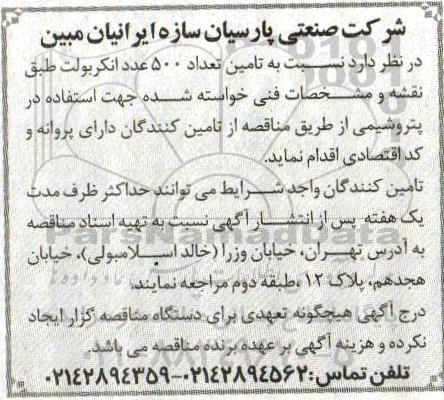 شرکت صنعتی پارسیان سازه ایرانیان مبین
در نظر دارد نسبت به تامین تعداد ۵۰۰ عدد انکربولت طبق
نقشه و مشخصات فنی خواسته شده جهت استفاده در
پتروشیمی از طریق مناقصه از تامین کنندگان دارای پروانه و
کد اقتصادی اقدام نماید.
تامین کنندگان واجد شرایط می توانند حداکثر ظرف مدت
یک هفته پس از انتشار آگهی نسبت به تهیه اسناد مناقصه
به آدرس تهران، خیابان وزرا (خالد اسلامبولی)، خیابان
هجدهم، پلاک ۱۲ ،طبقه دوم مراجعه نمایند.
درج آگهی هیچگونه تعهدی برای دستگاه مناقصه گزار ایجاد
نکرده و هزینه آگهی بر عهده برنده مناقصه می باشد.
تلفن تماس: ۰۲۱۴۲۸۹۴۵۶۲-۰۲۱۴۲۸۹۴۳۵۹